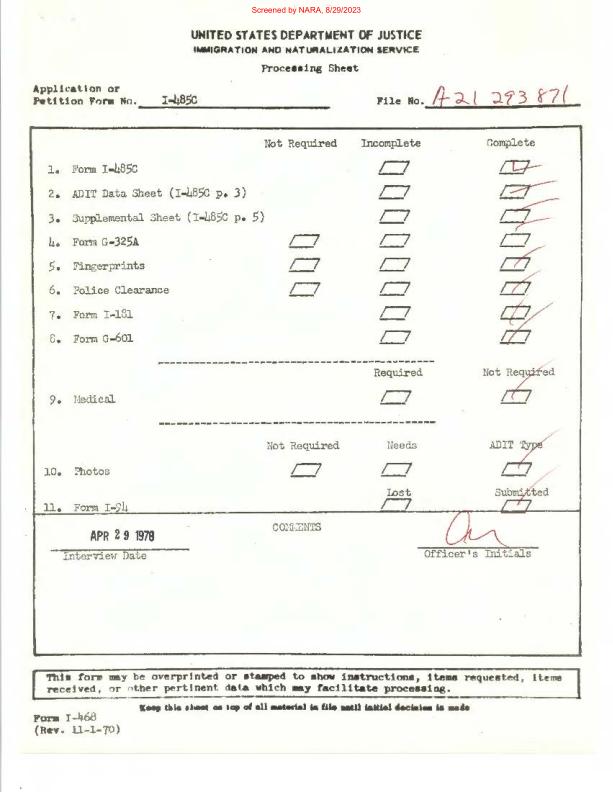 Screened by NARA, 8/29/2023
UNITED STATES DEPARTMENT OF JUSTICE
IMMIGRATION AND NATURALIZATION SERVICE
Processing Sheet
Application or
Petition Form No. I-485C File No. A21 293 871
Not Required Incomplete Complete
1. Form I-485C
2. ADIT Data Sheet (I-485C p. 3)
3. Supplemental Sheet (I-485C p. 5)
4. Form G-325A
5. Fingerprints
6. Police Clearance
7. Form I-181
8. Form G-601
Required Not Required
9. Medical
Not Required Needs ADIT Type
10. Photos
Lost Submitted
11. Form I-94
APR 29 1978 COMMENTS
Interview Date Officer's Initials
This form may be overprinted or stamped to show instructions, items requested, items
received, or other pertinent data which may facilitate processing.
Keep this sheet on top of all material in file until initial decision is made
Form I-468
(Rev. 11-1-70)